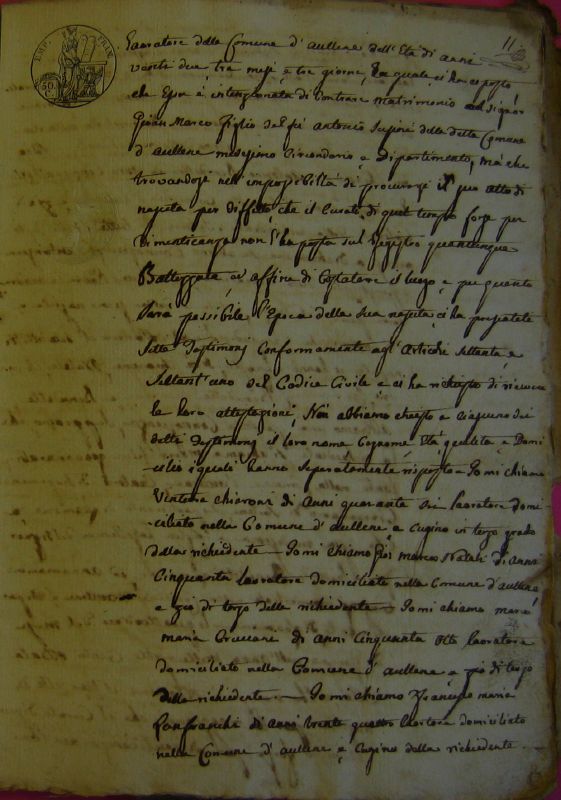 EMP. FRAN.
50. C.
11
Lavoratore della Comune d'aullene dell'Età di anni
venti due tre mesi e tre giorni, la quale ci ha esposto
che Essa è intenzionata di Contrare Matrimonio col Signor
Gioan Marco figlio del fù antonio della detta Comune
d'aullene medesimo Circondario e Dipartimento, mà che
trovandosi nell'impossibiltà di procurarsi il suo atto di
nascita per diffetto che il Curato di quel tempo forse per
Dimenticanza non l'ha posta sul Registro quantunque
Battezzata ad affine di Costatare il luogo e per quanto
sarà possibile l'Epoca della sua nascita ci ha presentate
Sette Testimonj Conformamente agl'Articoli Settanta e
Settant'uno del Codice Civile e ci ha richiesto di ricevere
le loro attestazioni, Noi abbiamo chiesto a Ciascuno dei
detti Testimonj il loro nome Cognome Età qualità e Domi
cilio i quali hanno Separatamente risposto - Io mi chiamo
Ventura chiaroni di Anni quaranta sei lavoratore domi-
ciliato nella Comune d'aullene e Cugino in terzo grado
della richiedente - Io mi chiamo Giò marco Natali di anni
Cinquanta lavoratore domiciliato nella Comune d'aullene
e zio di terzo della richiedente - Io mi chiamo
maria di anni Cinquanta otto lavoratore
domiciliato nella Comune d'aullene e zio di terzo
della richiedente - Io mi chiamo Francesco maria
Lanfranchi di anni trenta quattro domiciliato
nella Comune d'aullene e Cugino della richiedente -